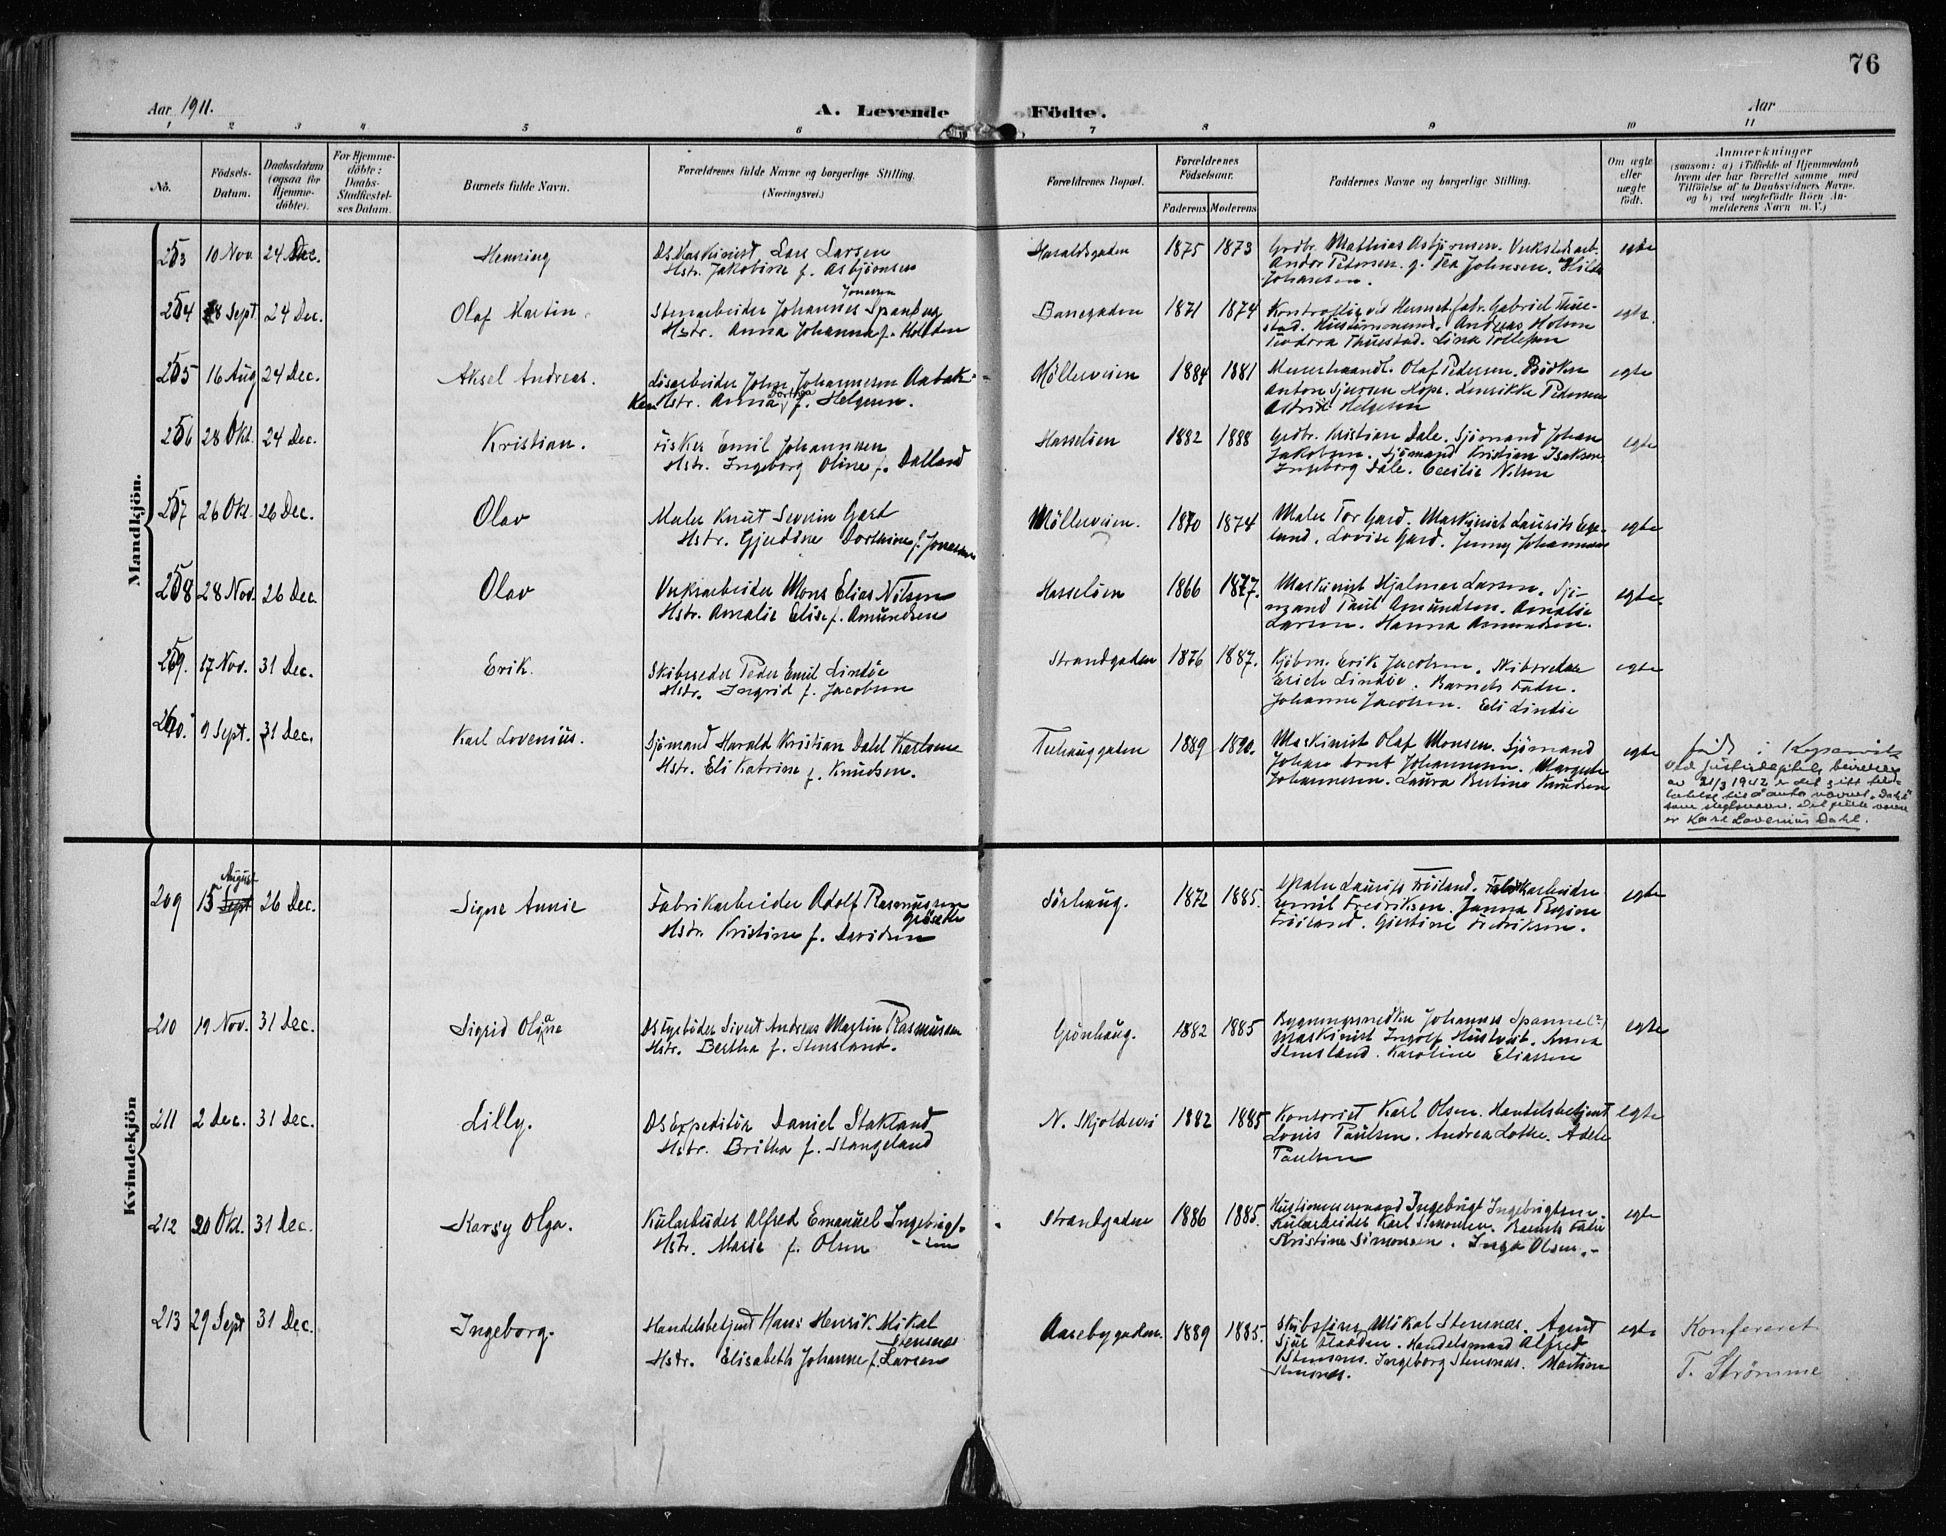 76
Aar 1911.
A. Levende Födte.
Aar
1 2 3 4 5 6 7 8 9 10 11
No.
Födsels-
Datum.
Daabsdatum
(ogsaa for
Hjemme-
döbte).
For Hjemme-
döbte:
Daabs-
Stadfæstel-
ses Datum.
Barnets fulde Navn.
Forældrenes fulde Navne og borgerlige Stilling.
(Næringsvei.)
Forældrenes Bopæl.
Forældrenes
Födselsaar.
Faderens. Moderens.
Faddernes Navne og borgerlige Stilling.
Om ægte
eller
uægte
födt.
Anmærkninger
(saasom: a) i Tilfælde af Hjemmedaab
hvem der har forrettet samme med
Tilföielse af to Daabsvidners Navne.
og b) ved uægtefödte Börn An-
melderens Navn m. V.)
Mandkjön.
253 10 Nov 24 Dec. Henning
DSMaskinist Lars Larsen
Hstr. Jakobine f. Asbjörnsen
Haraldsgaden 1875 1873
Grdbr. Mathias Asbjörnsen. Verkstedarb.
Andor Pedersen. g. Tea Johnsen. Hilda
Johansen.
egte
254 8 Sept. 24 Dec. Olaf Martin.
Jonassen
Stenarbeider Johannes
Hstr. Anna Johanna f.
1871 1874
Gabriel Thue-
stad. Andreas Holm
Teodora Thuestad. Lina Tollefsen
egte.
255 16 Aug 24 Dec. Aksel Andreas.
Lösarbeider John Johannesen Aabak-
ken Hstr. Anna Dorthea f. Helgesen.
Möllerveien 1884 1881
Olaf Pedersen. Bödker
Anton Sjursen Hope. Henrikke Pedersen
Astrid Helgesen
egte
256 28 Okt. 24 Dec. Kristian.
Fisker Emil Johannesen
Hstr. Ingeborg Oline f. Dalland
Hasselöen 1882 1888
Grdbr. Kristian Dale. Sjömand Johan
Jakobsen. Sjömand Kristian Isaksen
Ingeborg Dale. Cecilie Nilsen
egte
257 26 Okt. 26 Dec. Olav
Maler Knut Severin Gard
Hstr. Gjuddne Dorthine f. Jonassen
Möllerveien. 1870 1874
Maler Tor Gard. Maskinist Laurits Ege-
land. Lovise Gard. Jenny Johannesen
egte
258 28 Nov. 26 Dec. Olav
Verksarbeider Mons Elias Nilsen
Hstr. Amalie Elise f. Amundsen
Hasselöen 1866 1877.
Maskinist Hjalmar Larsen. Sjö-
mand Paul Amundsen. Amalie
Larsen. Hanna Amundsen.
egte.
259. 17 Nov. 31 Dec. Erik.
Skibsreder Peder Emil Lindöe
Hstr. Ingrid f. Jacobsen
Strandgaden 1876 1887.
Kjöbm. Erik Jacobsen. Skibsreder
Erich Lindöe. Barnets Fader.
Johanne Jacobsen. Eli Lindöe
egte
260. 9 Sept. 31 Dec. Karl Lovenius.
Sjömand Harald Kristian Dahl Karlsen
Hstr. Eli Katrine f. Knudsen.
1889 1890.
Maskinist Olaf Monsen. Sjömand
Johan Arnt Johannesen. Margrete
Johannesen. Laura Bertine Knudsen
egte
född i Kopervik
Ved Justisdeptets bevilling
av 21/3 1942 er det gitt till-
latelse til å anta navnet "Dahl"
som slegtsnavn. Det fulle navn
er Karl Lovenius Dahl.
Kvindekjön
209 15 August Sept 26 Dec. Signe Annie
Fabrikarbeider Adolf Rasmussen
Hstr. Kristine f. Davidsen
Sörhaug. 1872 1885.
Maler Laurits Fröiland. Fabrikarbeider
Emil Fredriksen. Janna Regine
Fröiland. Gjertine Fredriksen.
egte
210 19 Nov. 31 Dec. Sigrid Olga
DSfyrböder Sivert Andreas Martin Rasmussen
Hstr. Bertha f. Stensland.
Grönhaug. 1882 1885
Bygningssnedker Johannes Spanne (?)
Maskinist Ingolf Hustveit. Anna
Stensland. Karoline Eliassen
egte
211 2 Dec. 31 Dec. Lilly.
DSExpeditör Daniel Stakland
Hstr. Britha f. Stangeland
N. Skjoldvei 1882 1885
Kontorist Karl Olsen. Handelsbetjent
Louis Paulsen. Andrea Lothe. Adele
Paulsen
egte
212 20 Okt. 31 Dec. Karsy Olga.
Kularbeider Alfred Emanuel Ingebrigt-
sen
Hstr. Marie f. Olsen
Strandgaden 1886 1885.
Hustömmermand Ingebrigt Ingebrigtsen.
Kularbeider Karl Simonsen. Barnets Fader
Kristine Simonsen. Inga Olsen.
egte
213 29 Sept 31 Dec. Ingeborg.
Handelsbetjent Hans Henrik Mikal
Stensnes
Hstr. Elisabeth Johanne f. Larsen
Aarebygaden. 1889 1885.
Mikal Stensnes. Agent
Sjur Vladden. Handelsmand Alfred
Stensnes. Ingeborg Stensnes. Martine
Stensnes.
egte
Konfereret
T. Strömme